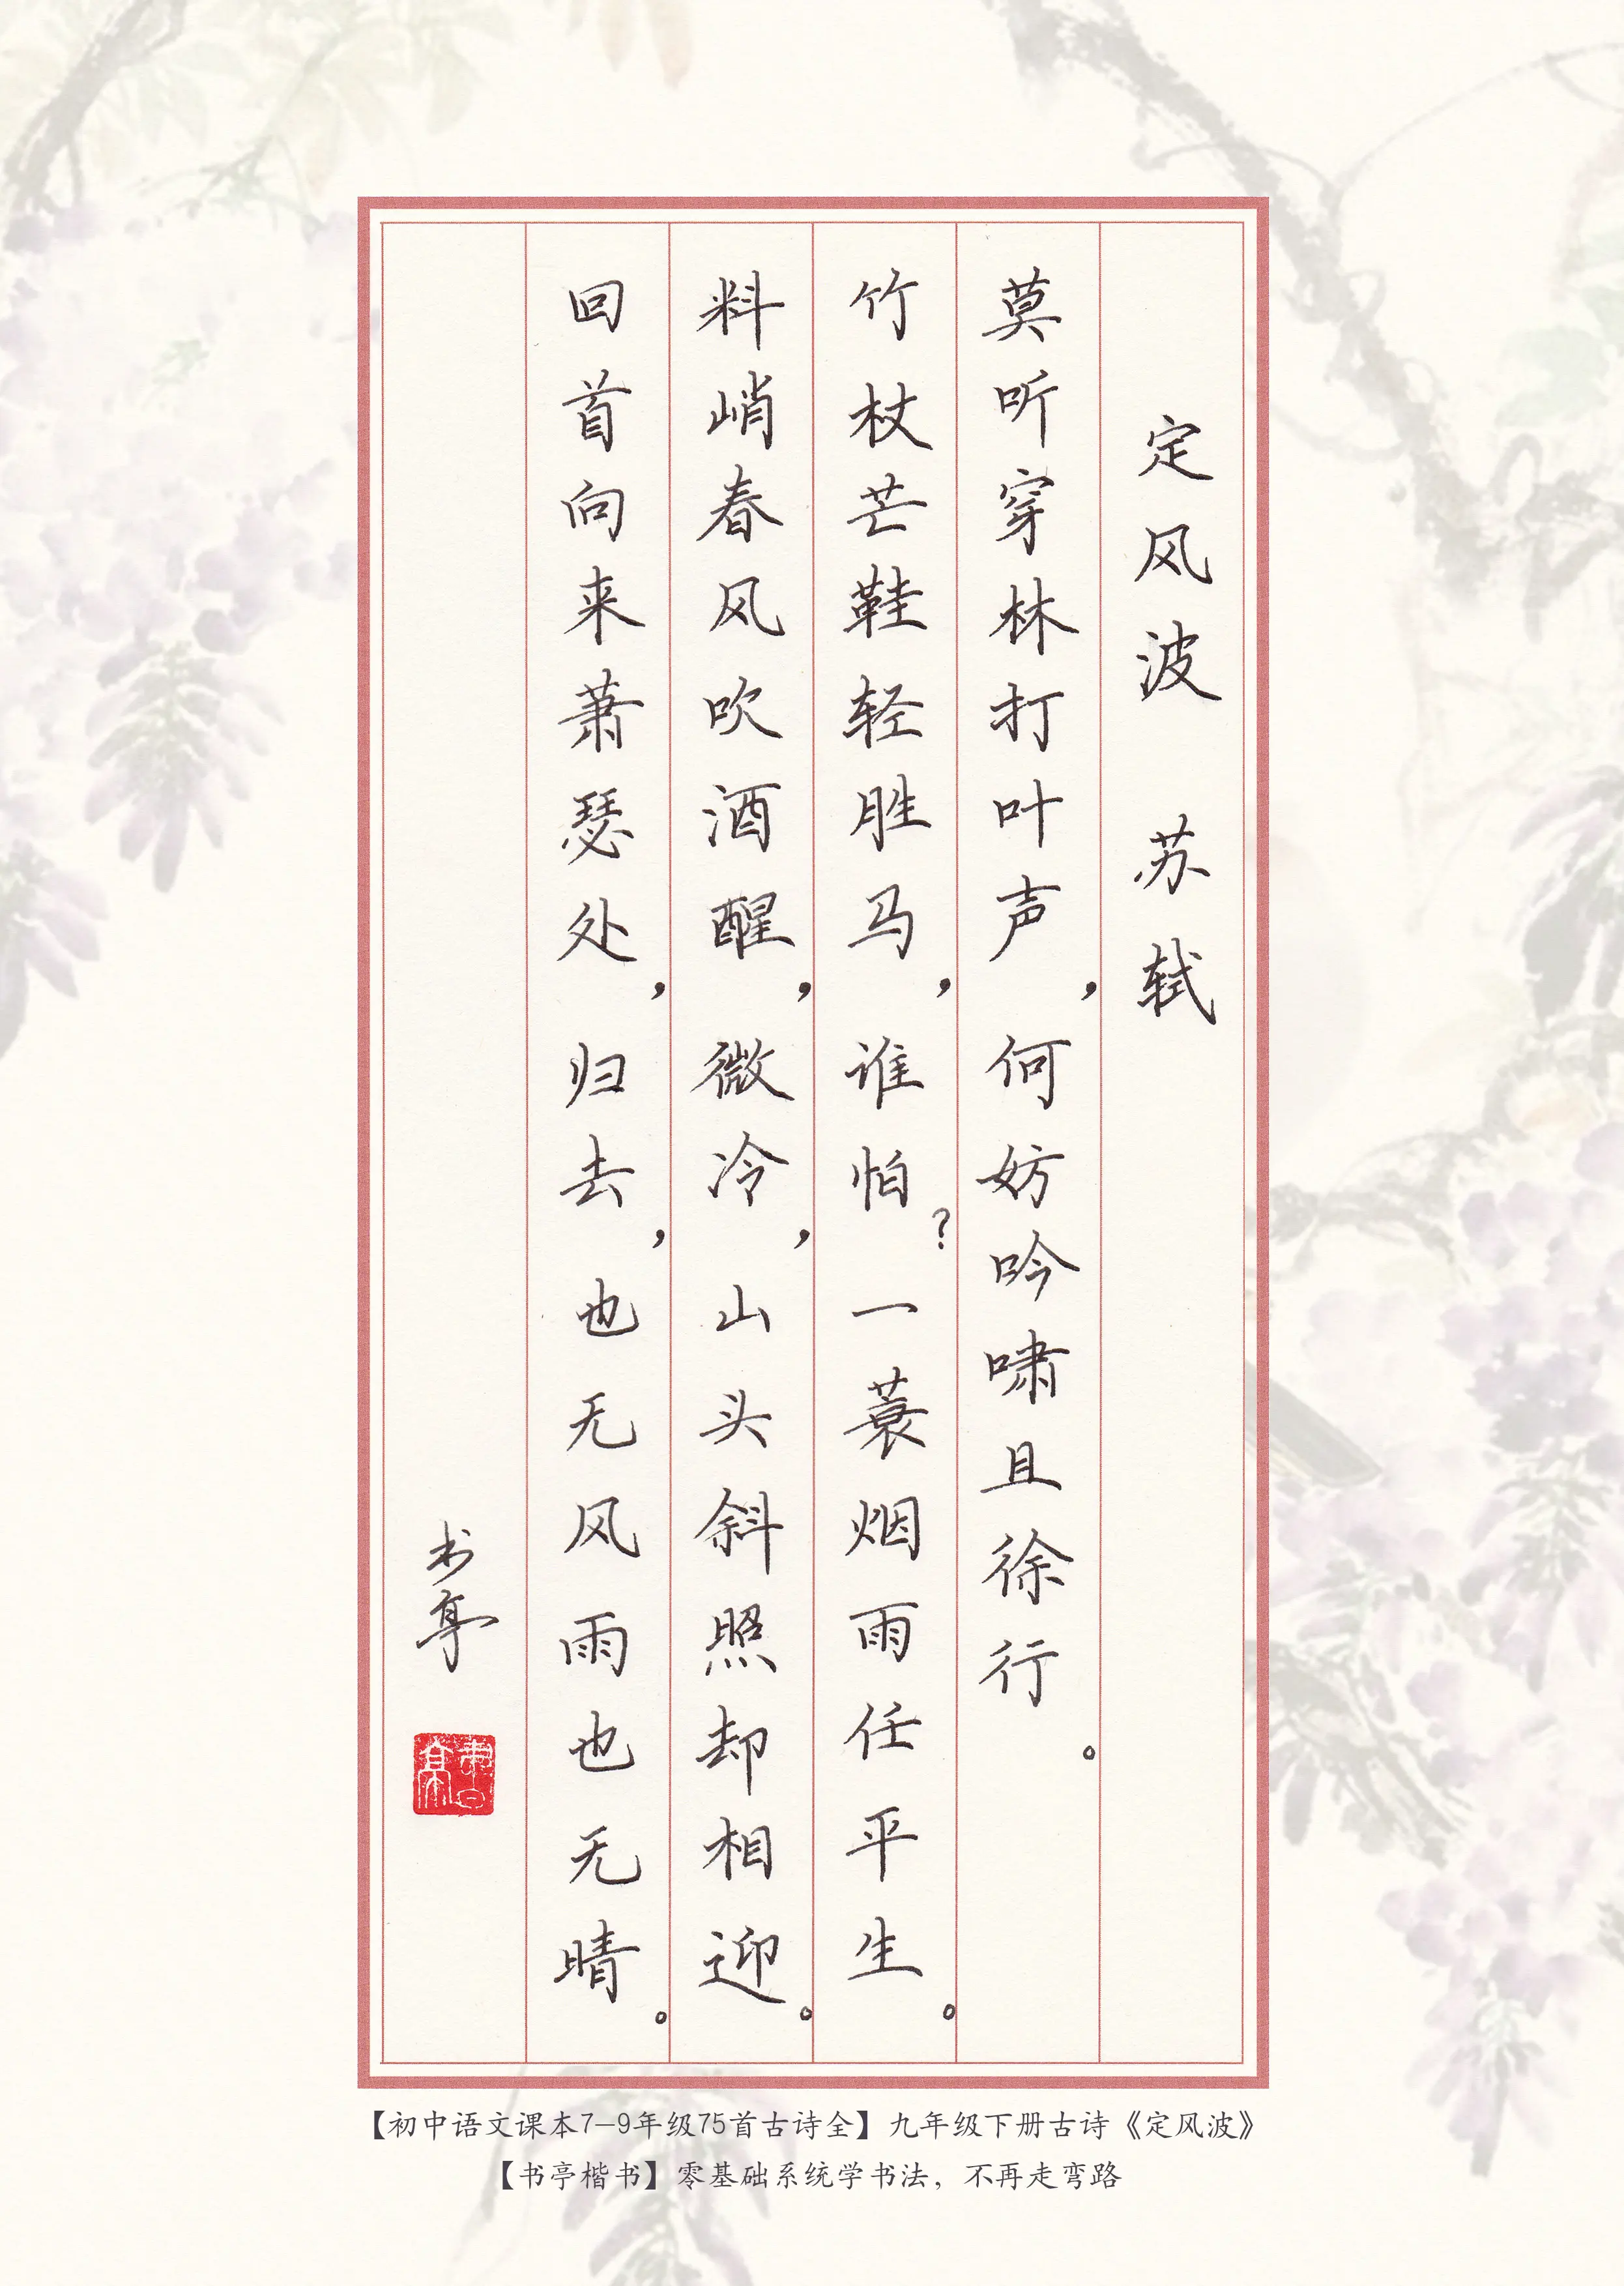 定风波 苏轼
莫听穿林打叶声，何妨吟啸且徐行。
竹杖芒鞋轻胜马，谁怕？一蓑烟雨任平生。
料峭春风吹酒醒，微冷，山头斜照却相迎。
回首向来萧瑟处，归去，也无风雨也无晴。
书亭
書亭
【初中语文课本7-9年级75首古诗全】九年级下册古诗《定风波》
【书亭楷书】零基础系统学书法，不再走弯路